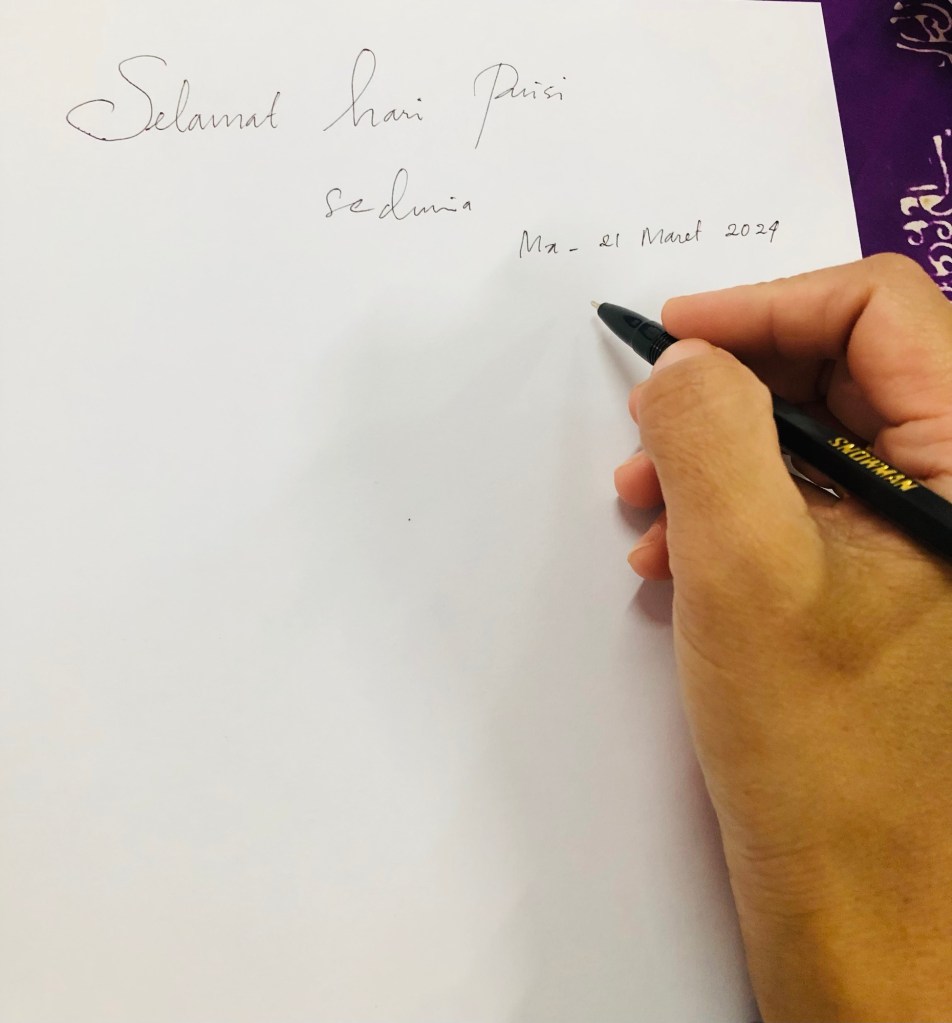 Selamat hari Puisi
sedunia
Mx - 21 Maret 2024
SNOWMAN